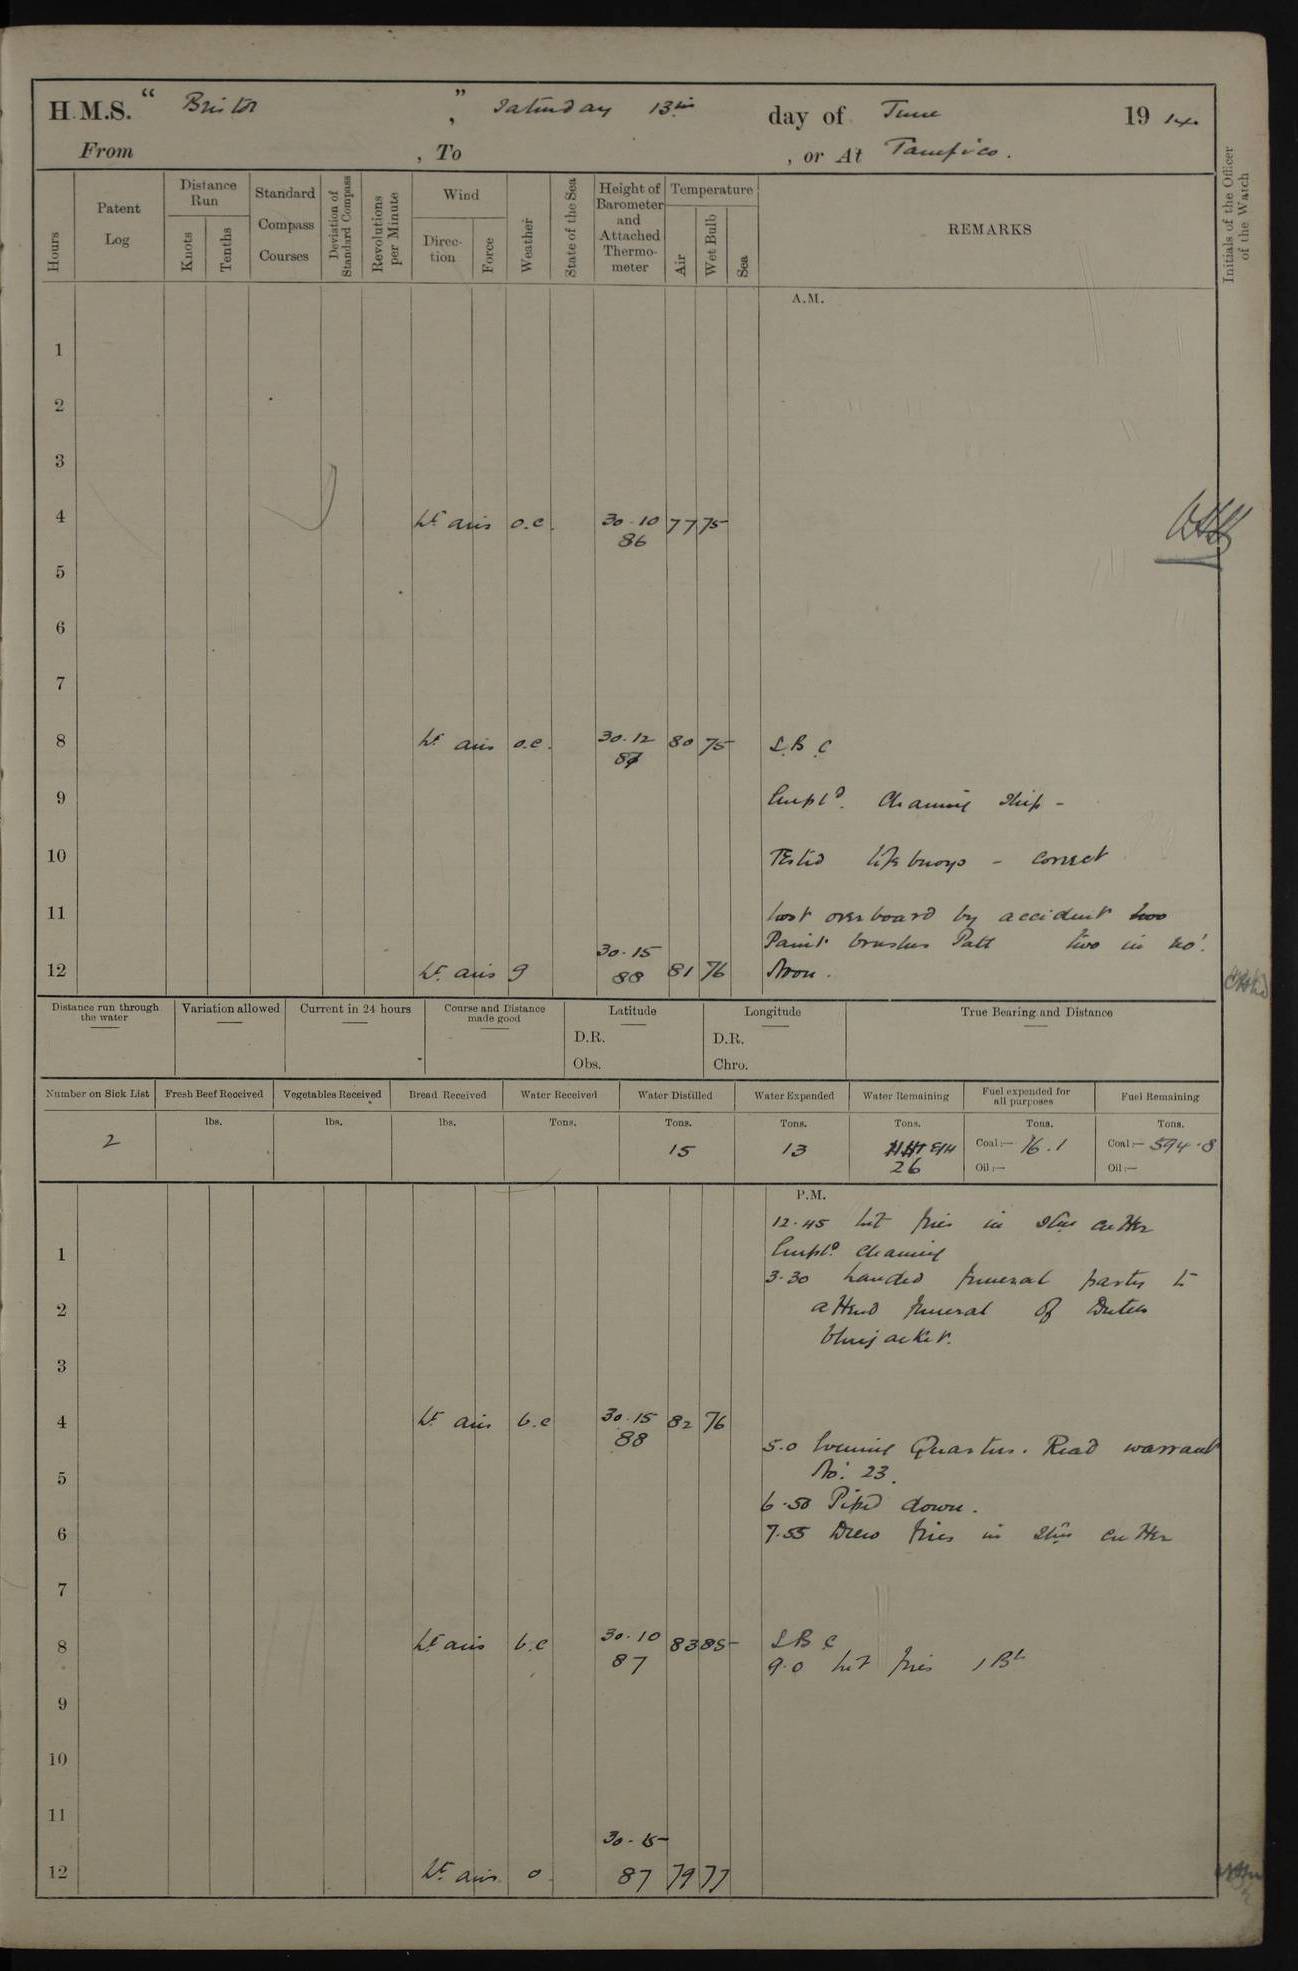 H.M.S. “ Bristol ” , Saturday 13th day of June 1914.
From , To , or At Tampico.
Hours
Patent Log
Distance Run
Knots
Tenths
Standard Compass Courses
Deviation of Standard Compass
Revolutions per Minute
Wind
Direc-tion
Force
Weather
State of the Sea
Height of Barometer and Attached Thermo-meter
Temperature
Air
Wet Bulb
Sea
REMARKS
Initials of the Officer of the Watch
A.M.
1
2
3
4 Lt airs o.c. 30.10 77 75
86
5
6
7
8 Lt airs o.c. 30.12 80 75 S.B.C
87
9 Empld. Cleaning Ship -
10 Tested lifebuoys - correct
11 Lost overboard by accident two
Paint brushes Patt two in no.
30.15
12 Lt. airs g 88 81 76 Noon.
Distance run through the water
Variation allowed
Current in 24 hours
Course and Distance made good
Latitude
D.R.
Obs.
Longitude
D.R.
Chro.
True Bearing and Distance
Number on Sick List
Fresh Beef Received
Vegetables Received
Bread Received
Water Received
Water Distilled
Water Expended
Water Remaining
Fuel expended for all purposes
Fuel Remaining
lbs. lbs. lbs. Tons. Tons. Tons. Tons. Tons. Tons.
2 15 13 26 Coal:— 16.1 Coal:— 594.8
Oil:— Oil:—
P.M.
12.45 Lit fires in Stm cutter
1 Empld. Cleaning
3.30 Landed funeral party to
2 attend funeral of Dutch
bluejacket.
3
4 Lt airs b.c 30.15 82 76
88
5.0 Evening Quarters. Read warrant
5 No. 23.
6.50 Piped down.
6 7.55 Drew fires in Stm cutter
7
8 Lt airs b.c 30.10 83 85 S.B.C
87 9.0 Lit fires 1 Br
9
10
11
30.15
12 Lt airs o 87 79 77